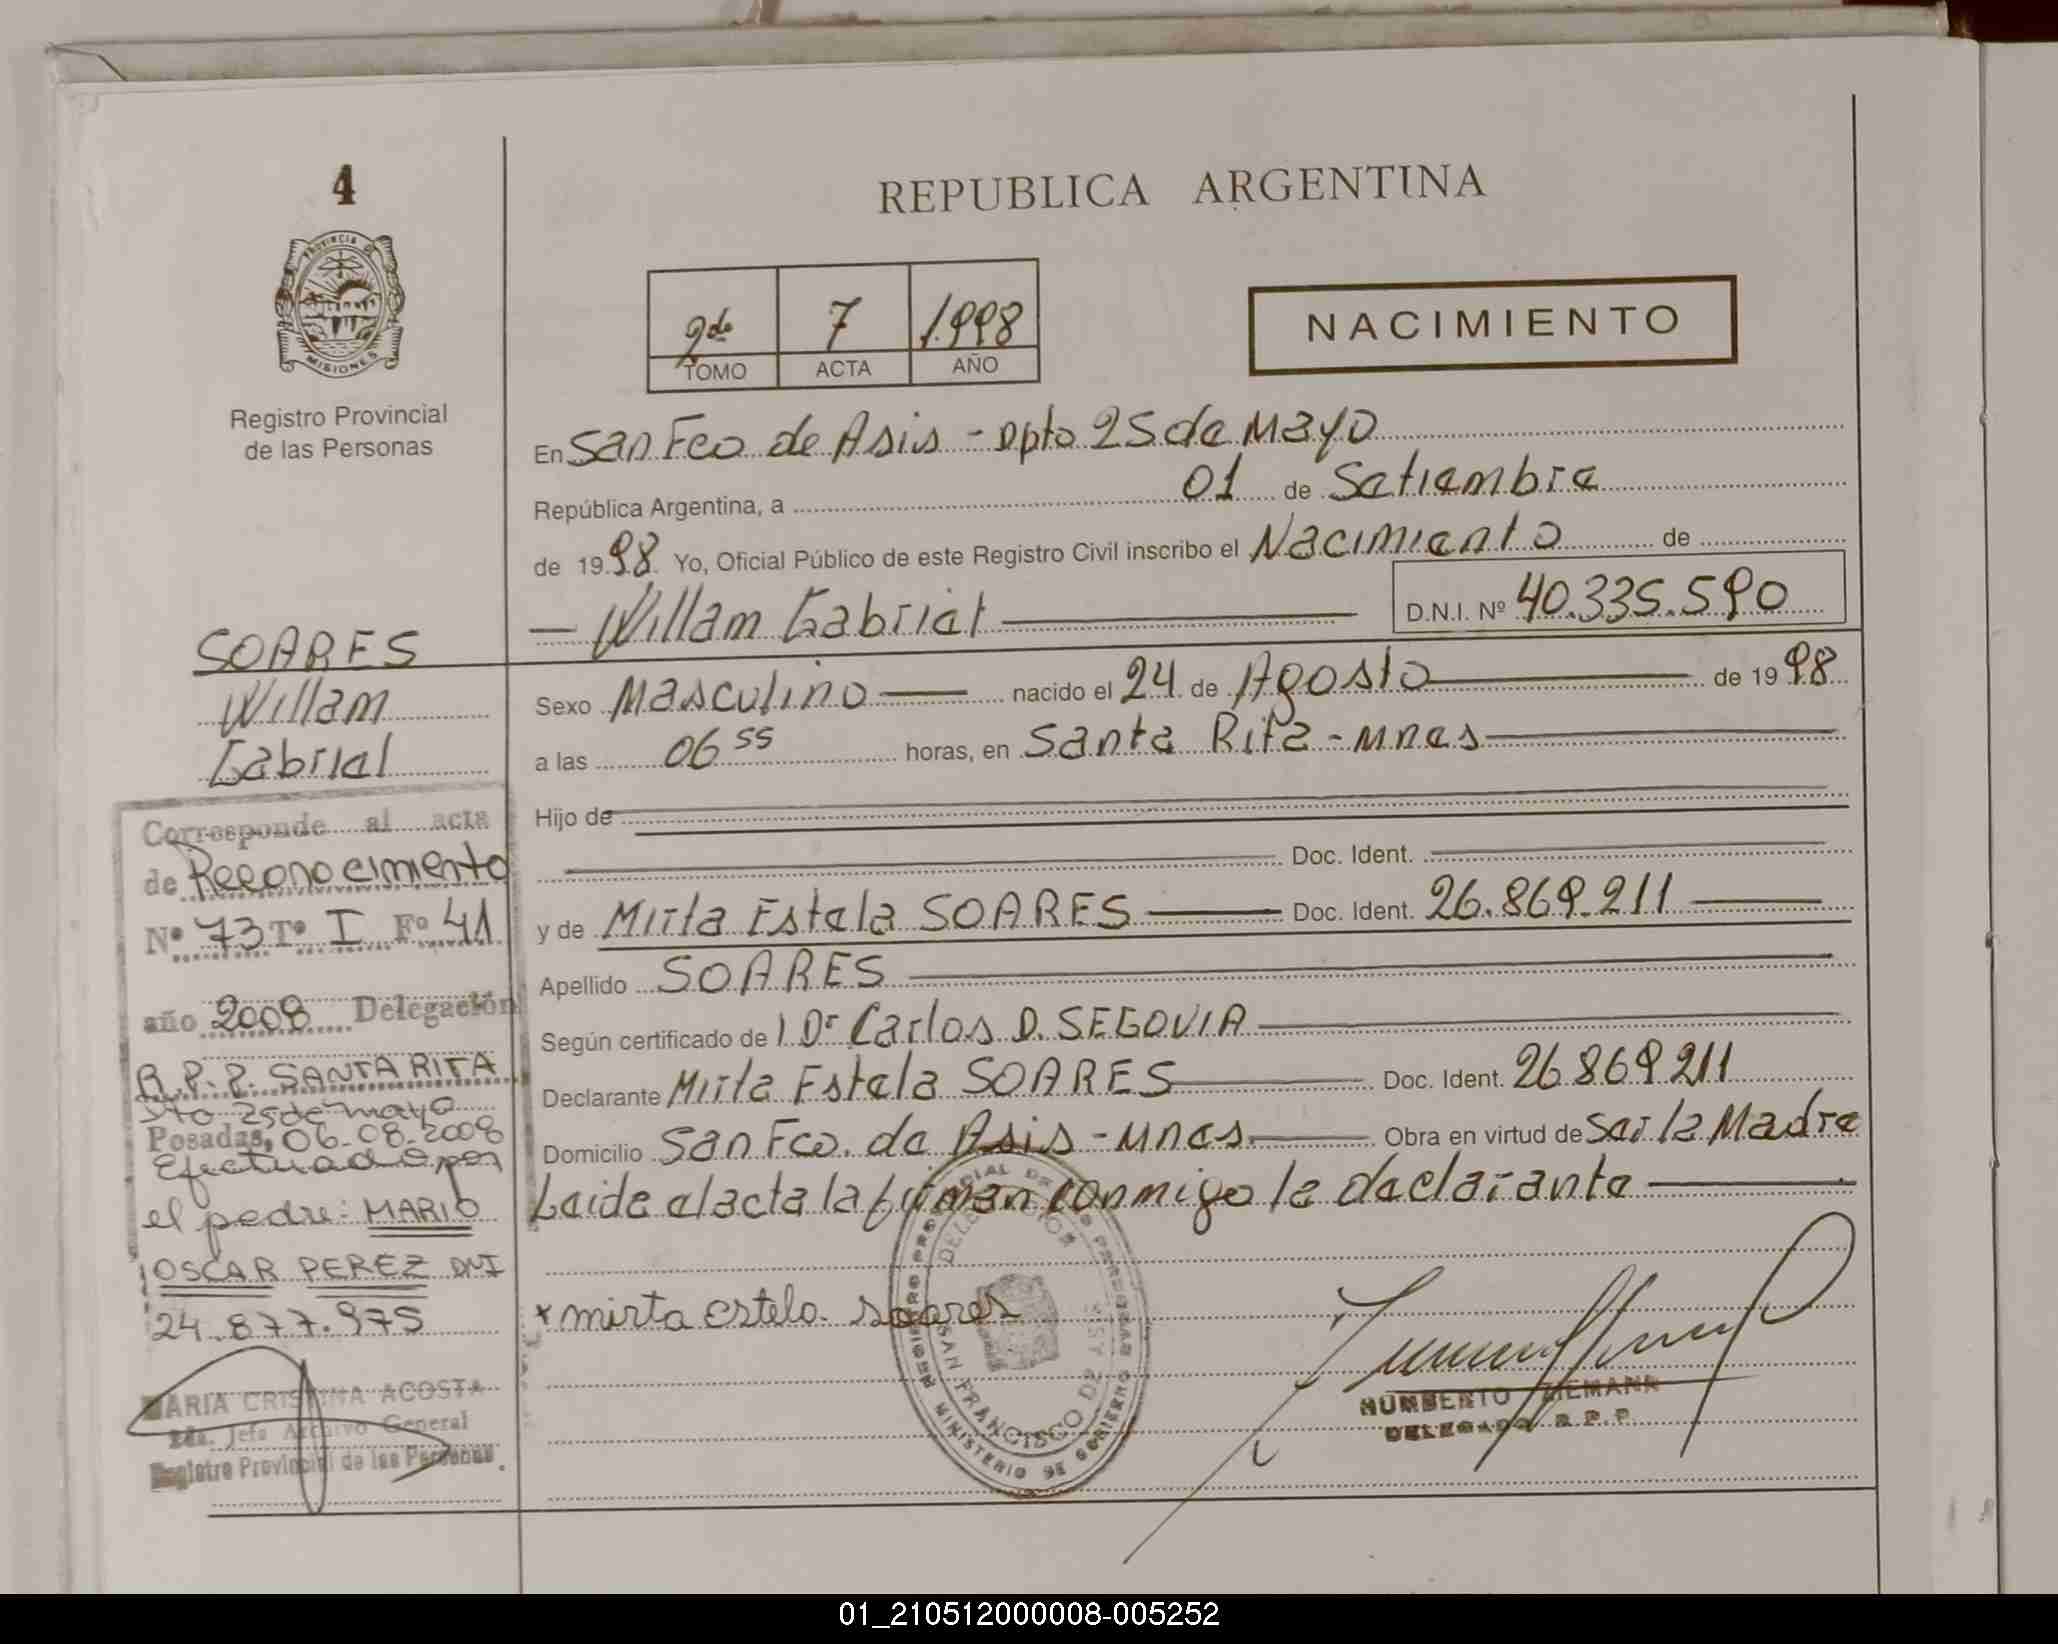 4
PROVINCIA DE
MISIONES
Registro Provincial
de las Personas
SOARES
Willam
Gabriel
Corresponde al acta
de Reconocimiento
Nº 73 Tº I Fº 41
año 2008 Delegación
R.P.P. SANTA RITA
Dto 25 de mayo
Posadas, 06-08-2008
Efectuado por
el padre: MARIO
OSCAR PEREZ DNI
24.877.975
MARIA CRISTINA ACOSTA
Jefa Archivo General
Registro Provincial de las Personas.
REPUBLICA ARGENTINA
2do 7 1.998
TOMO ACTA AÑO
NACIMIENTO
En San Fco de Asis - Dpto 25 de Mayo
República Argentina, a 01 de Setiembre
de 1998 Yo, Oficial Público de este Registro Civil inscribo el Nacimiento de
- Willam Gabriel D.N.I. Nº 40.335.590
Sexo Masculino nacido el 24 de Agosto de 1998
a las 06 55 horas, en Santa Rita - Mnes
Hijo de
Doc. Ident.
y de Mirta Estela SOARES Doc. Ident. 26.869.211
Apellido SOARES
Según certificado de l Dr Carlos D. SEGOVIA
Declarante Mirta Estela SOARES Doc. Ident. 26869211
Domicilio San Fco. de Asis - Mnes Obra en virtud de Ser la Madre
Leida el acta la firman conmigo la declarante
x mirta estela soares
SAN FRANCISCO DE ASIS
MINISTERIO DE GOBIERNO
HUMBERTO ZIEMANN
DELEGADO R.P.P.
01_210512000008-005252